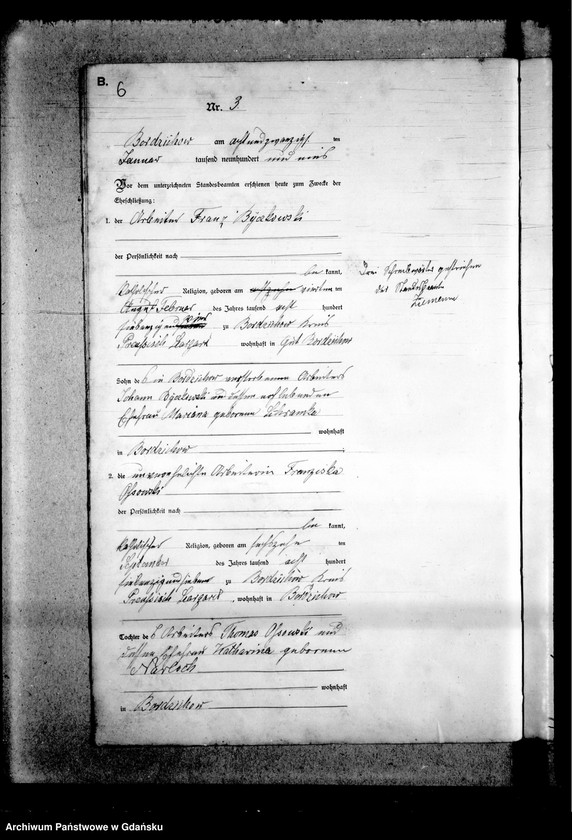 B.
6
Nr. 3
Bordzichow am achtundzwanzigsten
Januar tausend neunhundert und eins
Vor dem unterzeichneten Standesbeamten erschienen heute zum Zwecke der
Eheschließung:
1. der Arbeiter Franz
der Persönlichkeit nach
be kannt,
katholischer Religion, geboren am vierten im
Februar des Jahres tausend acht hundert
siebenzig zu Bordzichow Kreis
Preußisch Stargard wohnhaft in Gut Bordzichow
Sohn des in Bordzichow verstorbenen Arbeiters
Johann und dessen noch lebenden
Ehefrau Mariana geborenen
wohnhaft
in Bordzichow
2. die unverehelichte Arbeiterin Franziska
Ossowski
der Persönlichkeit nach
be kannt,
katholischer Religion, geboren am sechszehn im
September des Jahres tausend acht hundert
siebenzig und sieben zu Bordzichow Kreis
Preußisch Stargard, wohnhaft in Bordzichow
Tochter des Arbeiters Thomas Ossowski und
dessen Ehefrau Katharina geborenen
wohnhaft
in Bordzichow
Drei gestrichen
Der Standesbeamte
Ziemann
Archiwum Państwowe w Gdańsku